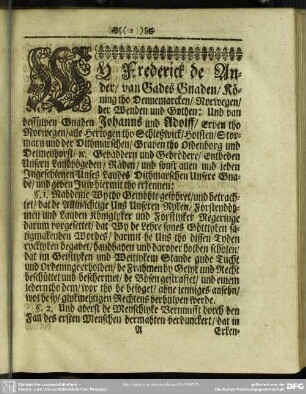 (1)
WY Frederick de An-
der/ van Gades Gnaden/ Kö-
ning tho Dennemarcken/ Norwegen/
der Wenden und Gothen: Und van
dessülven Gnaden Johanns und Adolff/ Erven tho
Norwegen/ alle Hertogen tho Schleßwick/ Holsten/ Stor-
marn und der Dithmarschen/ Graven tho Oldenborg und
Delmenhorst/ ꝛc. Geväddern und Gebrödere/ entbeden
Unsern Landvögeden/ Rädern/ und sunst allen und jeden
Ingesetenen Unses Landes Dithmarschen Unsere Gna-
de/ und geven Juw hiermit tho erkennen:
§. 1. Nahdeme Wy tho Gemöthe geföhret/ und betrach-
tet/ dat de Allmächtige Uns Unseren Ryken/ Förstendöh-
men und Landen Königlyker und Förstlyker Regeringe
darum vorgesettet/ dat Wy de Lehre synes Göttlyken sa-
ligmakenden Wordes/ darmit he Uns tho dissen Tyden
rycklyken begavet/ handhaben und daröver holden schölen/
dat im Geistlyken und Weltlyken Stande gude Tucht
und Ordeninge erholden/ de Frahmen by Gelyk und Recht
beschüttet und beschermet/ de Bösen gestraffet/ und einem
jedern tho dem/ wor tho he bevöget/ ahne jenniges ansehn/
wol he sy/ glykmehtigen Rechtens verhulpen werde.
§. 2. Und aberst de Menschlyke Vernunft dorch den
Fall des ersten Menschen dermahten verdunckert/ dat in
A Erken-